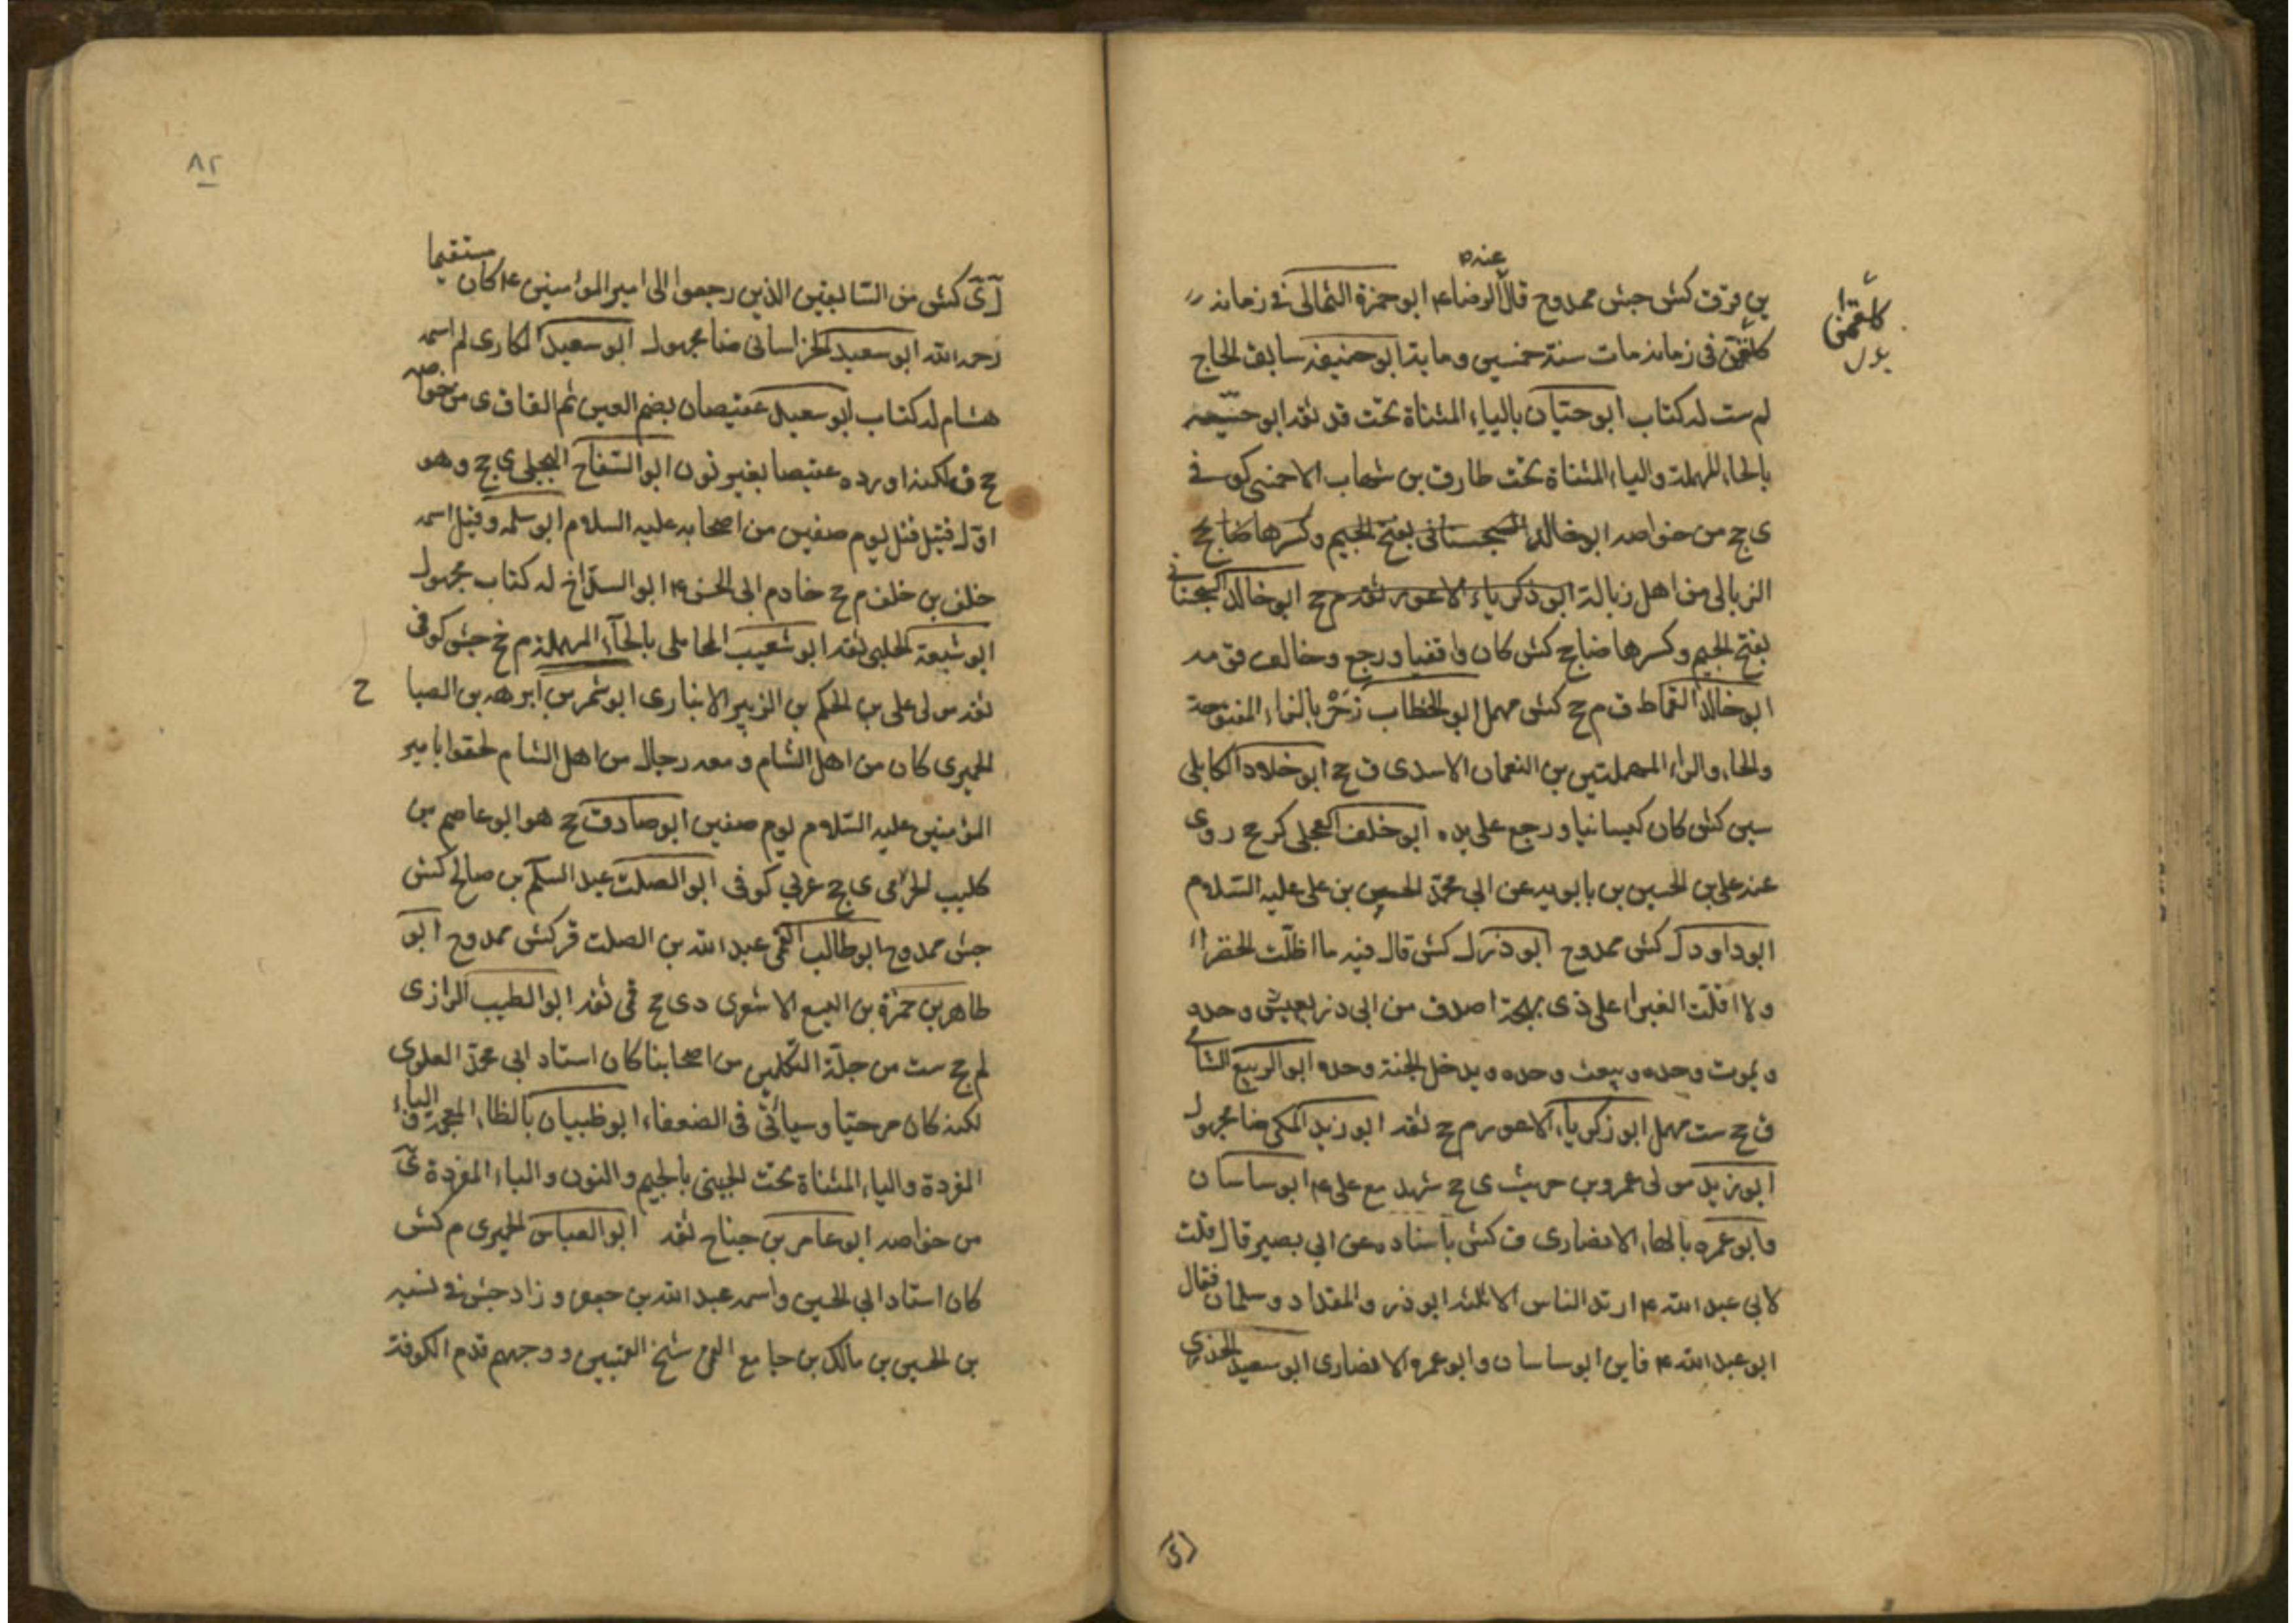 عنه
بن فرق كش جش ممدوح قال الرضا ع ابو حمزة الثمالى فى زمانه
كلقمن فى زمانه مات سنة خمسين وماية ابو حنيفه سابق الحاج
كلقمن
بدل
لم ست له كتاب ابو حتيان بالياء المثناة تحت قد ثقه ابو حيّه
بالحاء المهملة والياء المثناة تحت طارق بن شهاب الاحمسى كوفى
ى ج من خواصه ابو خالد السجستانى بفتح الجيم وكسرها ضا جخ
الزبالى من اهل زبالة ابو ذكرياء الاعور ثقه م ج ابو خالد السجستانى
بفتح الجيم وكسرها ضا ج كش كان واقفيا ورجع وخالف
ابو خالد القماط ق م ج كش مهمل ابو الخطاب زحر بالزاء المفتوحة
والحاء والراء المهملتين بن النعمان الاسدى ق ج ابو خلاد الكابلى
سين كش كان كيسانيا ورجع على يده ابو خلف العجلى كر ج روى
عنه على بن الحسين بن بابويه عن ابى محمد الحسن بن على عليه السلام
ابو داود ل كش ممدوح ابو ذر ل كش قال فيه ما اظلّت الخضراء
ولا اقلّت الغبراء على ذى لهجة اصدق من ابى ذر يعيش وحده
ويموت وحده ويبعث وحده ويدخل الجنة وحده ابو الربيع الشامى
ق ج ست مهمل ابو زكرياء الاعور م ج ثقه ابو زيد المكى ضا مجهول
ابو زيد مولى عمرو بن حريث ى ج شهد مع على ع ابو ساسان
وابو عمره بالهاء الانصارى ق كش باسناده عن ابى بصير قال قلت
لابى عبد الله ع ارتد الناس الا ثلثه ابو ذر والمقداد وسلمان فقال
ابو عبد الله ع فاين ابو ساسان وابو عمره الانصارى ابو سعيد الخدرى
٨٢
ل ى كش من السابقين الذين رجعوا الى امير المؤمنين ع كان مستقيما
رحمه الله ابو سعيد الخراسانى ضا مجهول ابو سعيد المكارى لم اسمه
هشام له كتاب ابو سعيد عقيصان بضم العين ثم القاف ى من خواصه
ج ق لكنه اورده عقيصا بغير نون ابو السفاح البجلى ى ج وهو
اوّل قتيل قتل يوم صفين من اصحابه عليه السلام ابو سلمه وقيل اسمه
خلف بن خلف م ج خادم ابى الحسن ع ابو السلاخ له كتاب مجهول
ابو شبعة الحلبى ثقه ابو شعيب المحاملى بالحاء المهملة م خ جش كوفى
ثقه مولى على بن الحكم بن الزبير الانبارى ابو شمر بن ابرهه بن الصبا
ح
الحميرى كان من اهل الشام ومعه رجال من اهل الشام لحقوا بامير
المؤمنين عليه السّلام يوم صفين ابو صادق ج هو ابو عاصم بن
كليب الجرمى ى ج عربى كوفى ابو الصلت عبد السلم بن صالح كش
جش ممدوح ابو طالب القمى عبد الله بن الصلت قر كش ممدوح ابو
طاهر بن حمزة بن اليسع الاشعرى دى ج قمى ثقه ابو الطيب الرازى
لم ج ست من جلّة المتكلمين من اصحابنا كان استاد ابى محمد العلوى
لكنه كان مرجئيا وسياتى فى الضعفاء ابو ظبيان بالظاء المعجمة فالباء
المفردة والياء المثناة تحت الجنبى بالجيم والنون والباء المفردة ى
من خواصه ابو عامر بن جناح ثقه ابو العباس الحميرى م كش
كان استاد ابى الحسين واسمه عبد الله بن جعفر وزاد جش فى نسبه
بن الحسين بن مالك بن جامع القمى شيخ القميين ووجههم قدم الكوفة